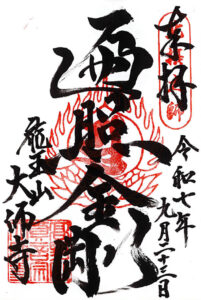 奉拝
令和七年
九月二十三日
遍照金剛
龍王山
大師寺